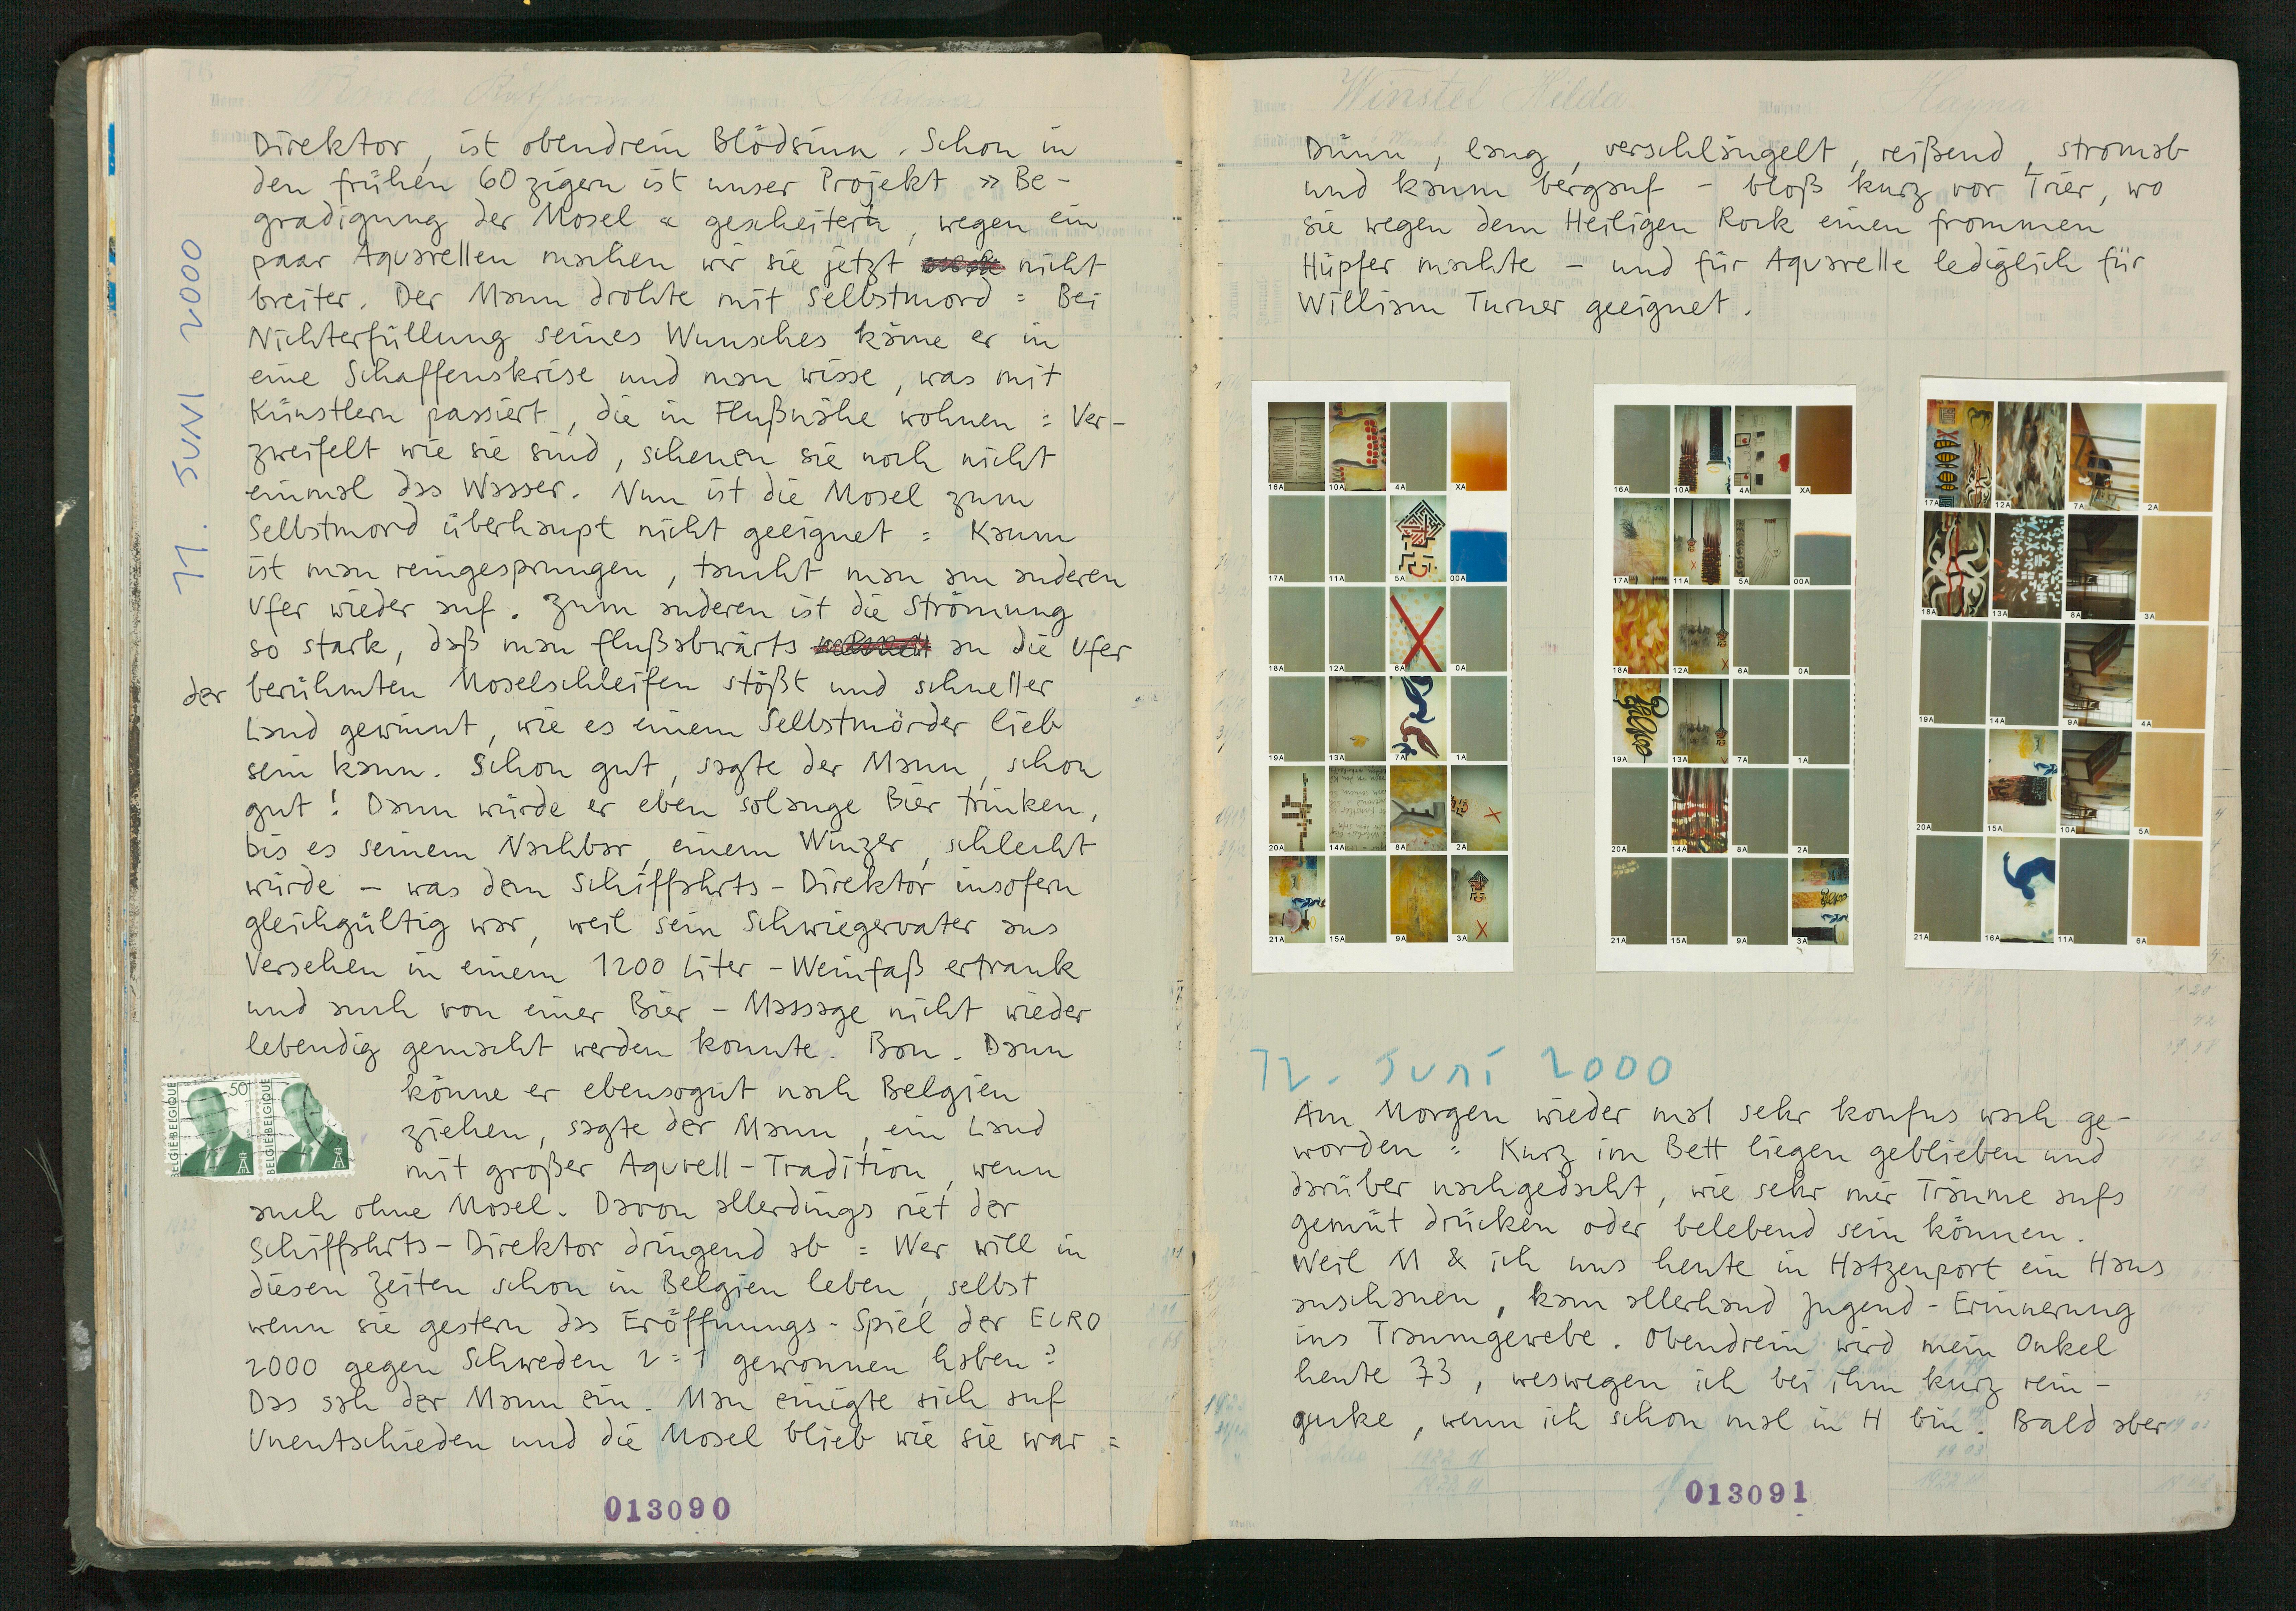 11. JUNI 2000
Direktor, ist obendrein Blödsinn. Schon in
den frühen 60zigern ist unser Projekt » Be-
gradigung der Mosel « gescheitert, wegen ein
paar Aquarellen machen wir sie jetzt nicht
breiter. Der Mann drohte mit Selbstmord = Bei
Nichterfüllung seines Wunsches käme er in
eine Schaffenskrise und man wisse, was mit
Künstlern passiert, die in Flußnähe wohnen = Ver-
zweifelt wie sie sind, scheuen sie noch nicht
einmal das Wasser. Nun ist die Mosel zum
Selbstmord überhaupt nicht geeignet = Kaum
ist man reingesprungen, taucht man am anderen
Ufer wieder auf. Zum anderen ist die Strömung
so stark, daß man flußabwärts an die Ufer
der berühmten Moselschleifen stößt und schneller
Land gewinnt, wie es einem Selbstmörder lieb
sein kann. Schon gut, sagte der Mann, schon
gut! Dann würde er eben solange Bier trinken,
bis es seinem Nachbar, einem Winzer, schlecht
würde – was dem Schiffahrts-Direktor insofern
gleichgültig war, weil sein Schwiegervater aus
Versehen in einem 1200 Liter-Weinfaß ertrank
und auch von einer Bier-Massage nicht wieder
lebendig gemacht werden konnte. Bon. Dann
könne er ebensogut nach Belgien
ziehen, sagte der Mann, ein Land
mit großer Aqurell-Tradition, wenn
auch ohne Mosel. Davon allerdings riet der
Schiffahrts-Direktor dringend ab = Wer will in
diesen Zeiten schon in Belgien leben, selbst
wenn sie gestern das Eröffnungs-Spiel der EURO
2000 gegen Schweden 2=1 gewonnen haben?
Das sah der Mann ein. Man einigte sich auf
Unentschieden und die Mosel blieb wie sie war =
BELGIE-BELGIQUE
50
BELGIE-BELGIQUE
013090
Winstel Hilda
Hayna
Dünn, lang, verschlängelt, reißend, stromab
und kaum bergauf – bloß kurz vor Trier, wo
sie wegen dem Heiligen Rock einen frommen
Hüpfer machte – und für Aquarelle lediglich für
William Turner geeignet.
16A 10A 4A XA
17A 11A 5A 00A
18A 12A 6A 0A
19A 13A 7A 1A
20A 14A 8A 2A
21A 15A 9A 3A
16A 10A 4A XA
17A 11A 5A 00A
18A 12A 6A 0A
19A 13A 7A 1A
20A 14A 8A 2A
21A 15A 9A 3A
17A 12A 7A 2A
18A 13A 8A 3A
19A 14A 9A 4A
20A 15A 10A 5A
21A 16A 11A 6A
12. Juni 2000
Am Morgen wieder mal sehr konfus wach ge-
worden = Kurz im Bett liegen geblieben und
darüber nachgedacht, wie sehr mir Träume aufs
gemüt drücken oder belebend sein können.
Weil M & ich uns heute in Hatzenport ein Haus
anschauen, kam allerhand Jugend-Erinnerung
ins Traumgewebe. Obendrein wird mein Onkel
heute 73, weswegen ich bei ihm kurz rein-
gucke, wenn ich schon mal in H bin. Bald aber
013091